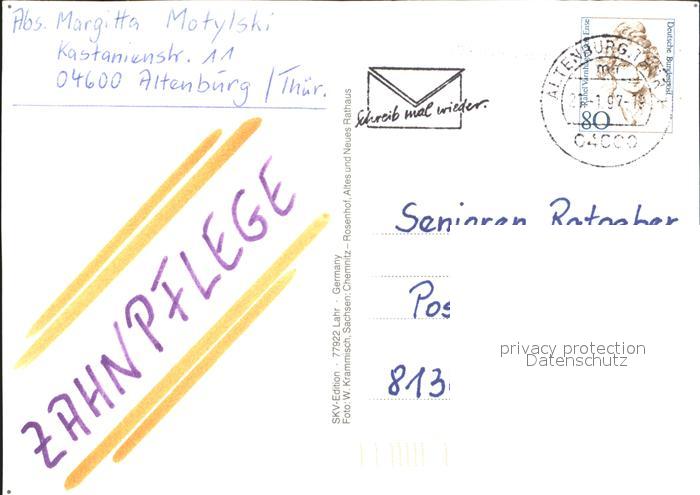 Abs. Margitta Motylski
Kastanienstr. 11
04600 Altenburg / Thür.
Schreib mal wieder.
ALTENBURG, THÜR
-1.97-19
04600
Deutsche Bundespost
80
ZAHNPFLEGE
SKV-Edition · 77922 Lahr · Germany
Foto W. Krammisch, Sachsen: Chemnitz – Rosenhof, Altes und Neues Rathaus
Senioren Ratgeber
Pos
813
privacy protection
Datenschutz